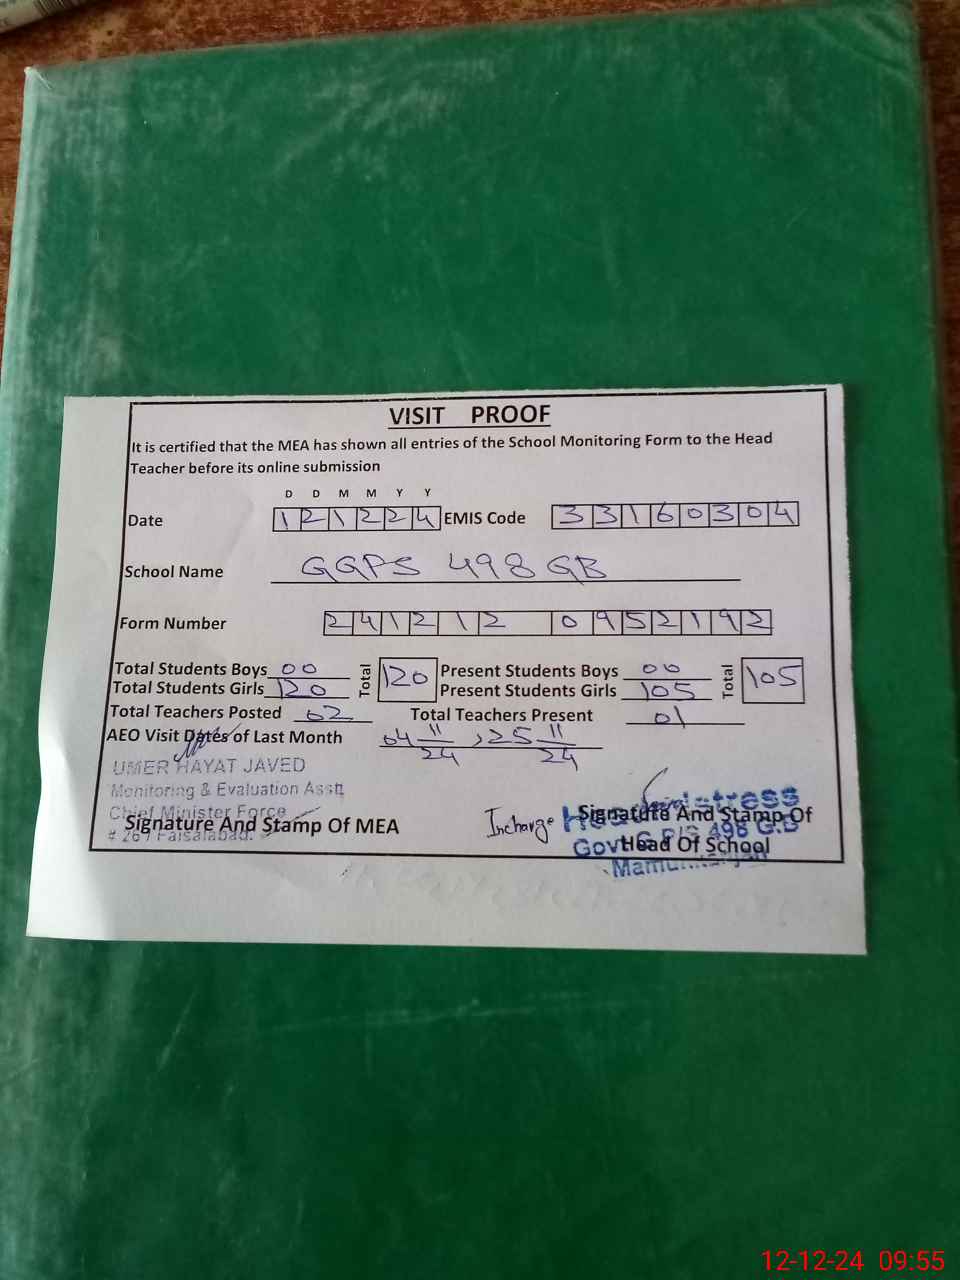 VISIT PROOF
It is certified that the MEA has shown all entries of the School Monitoring Form to the Head
Teacher before its online submission
D D M M Y Y
Date 121224 EMIS Code 33160304
School Name GGPS 498 GB
Form Number 241212 0952192
Total Students Boys 00 Total 120 Present Students Boys 00 Total 105
Total Students Girls 120 Present Students Girls 105
Total Teachers Posted 02 Total Teachers Present 01
AEO Visit Dates of Last Month 04 11/24, 25 11/24
UMER HAYAT JAVED
Monitoring & Evaluation Asstt
Chief Minister Force
Signature And Stamp Of MEA
# 267 Faisalabad.
Incharge
Headmistress
Signature And Stamp Of
Govt. G.P/S 498 G.B
Head Of School
12-12-24 09:55